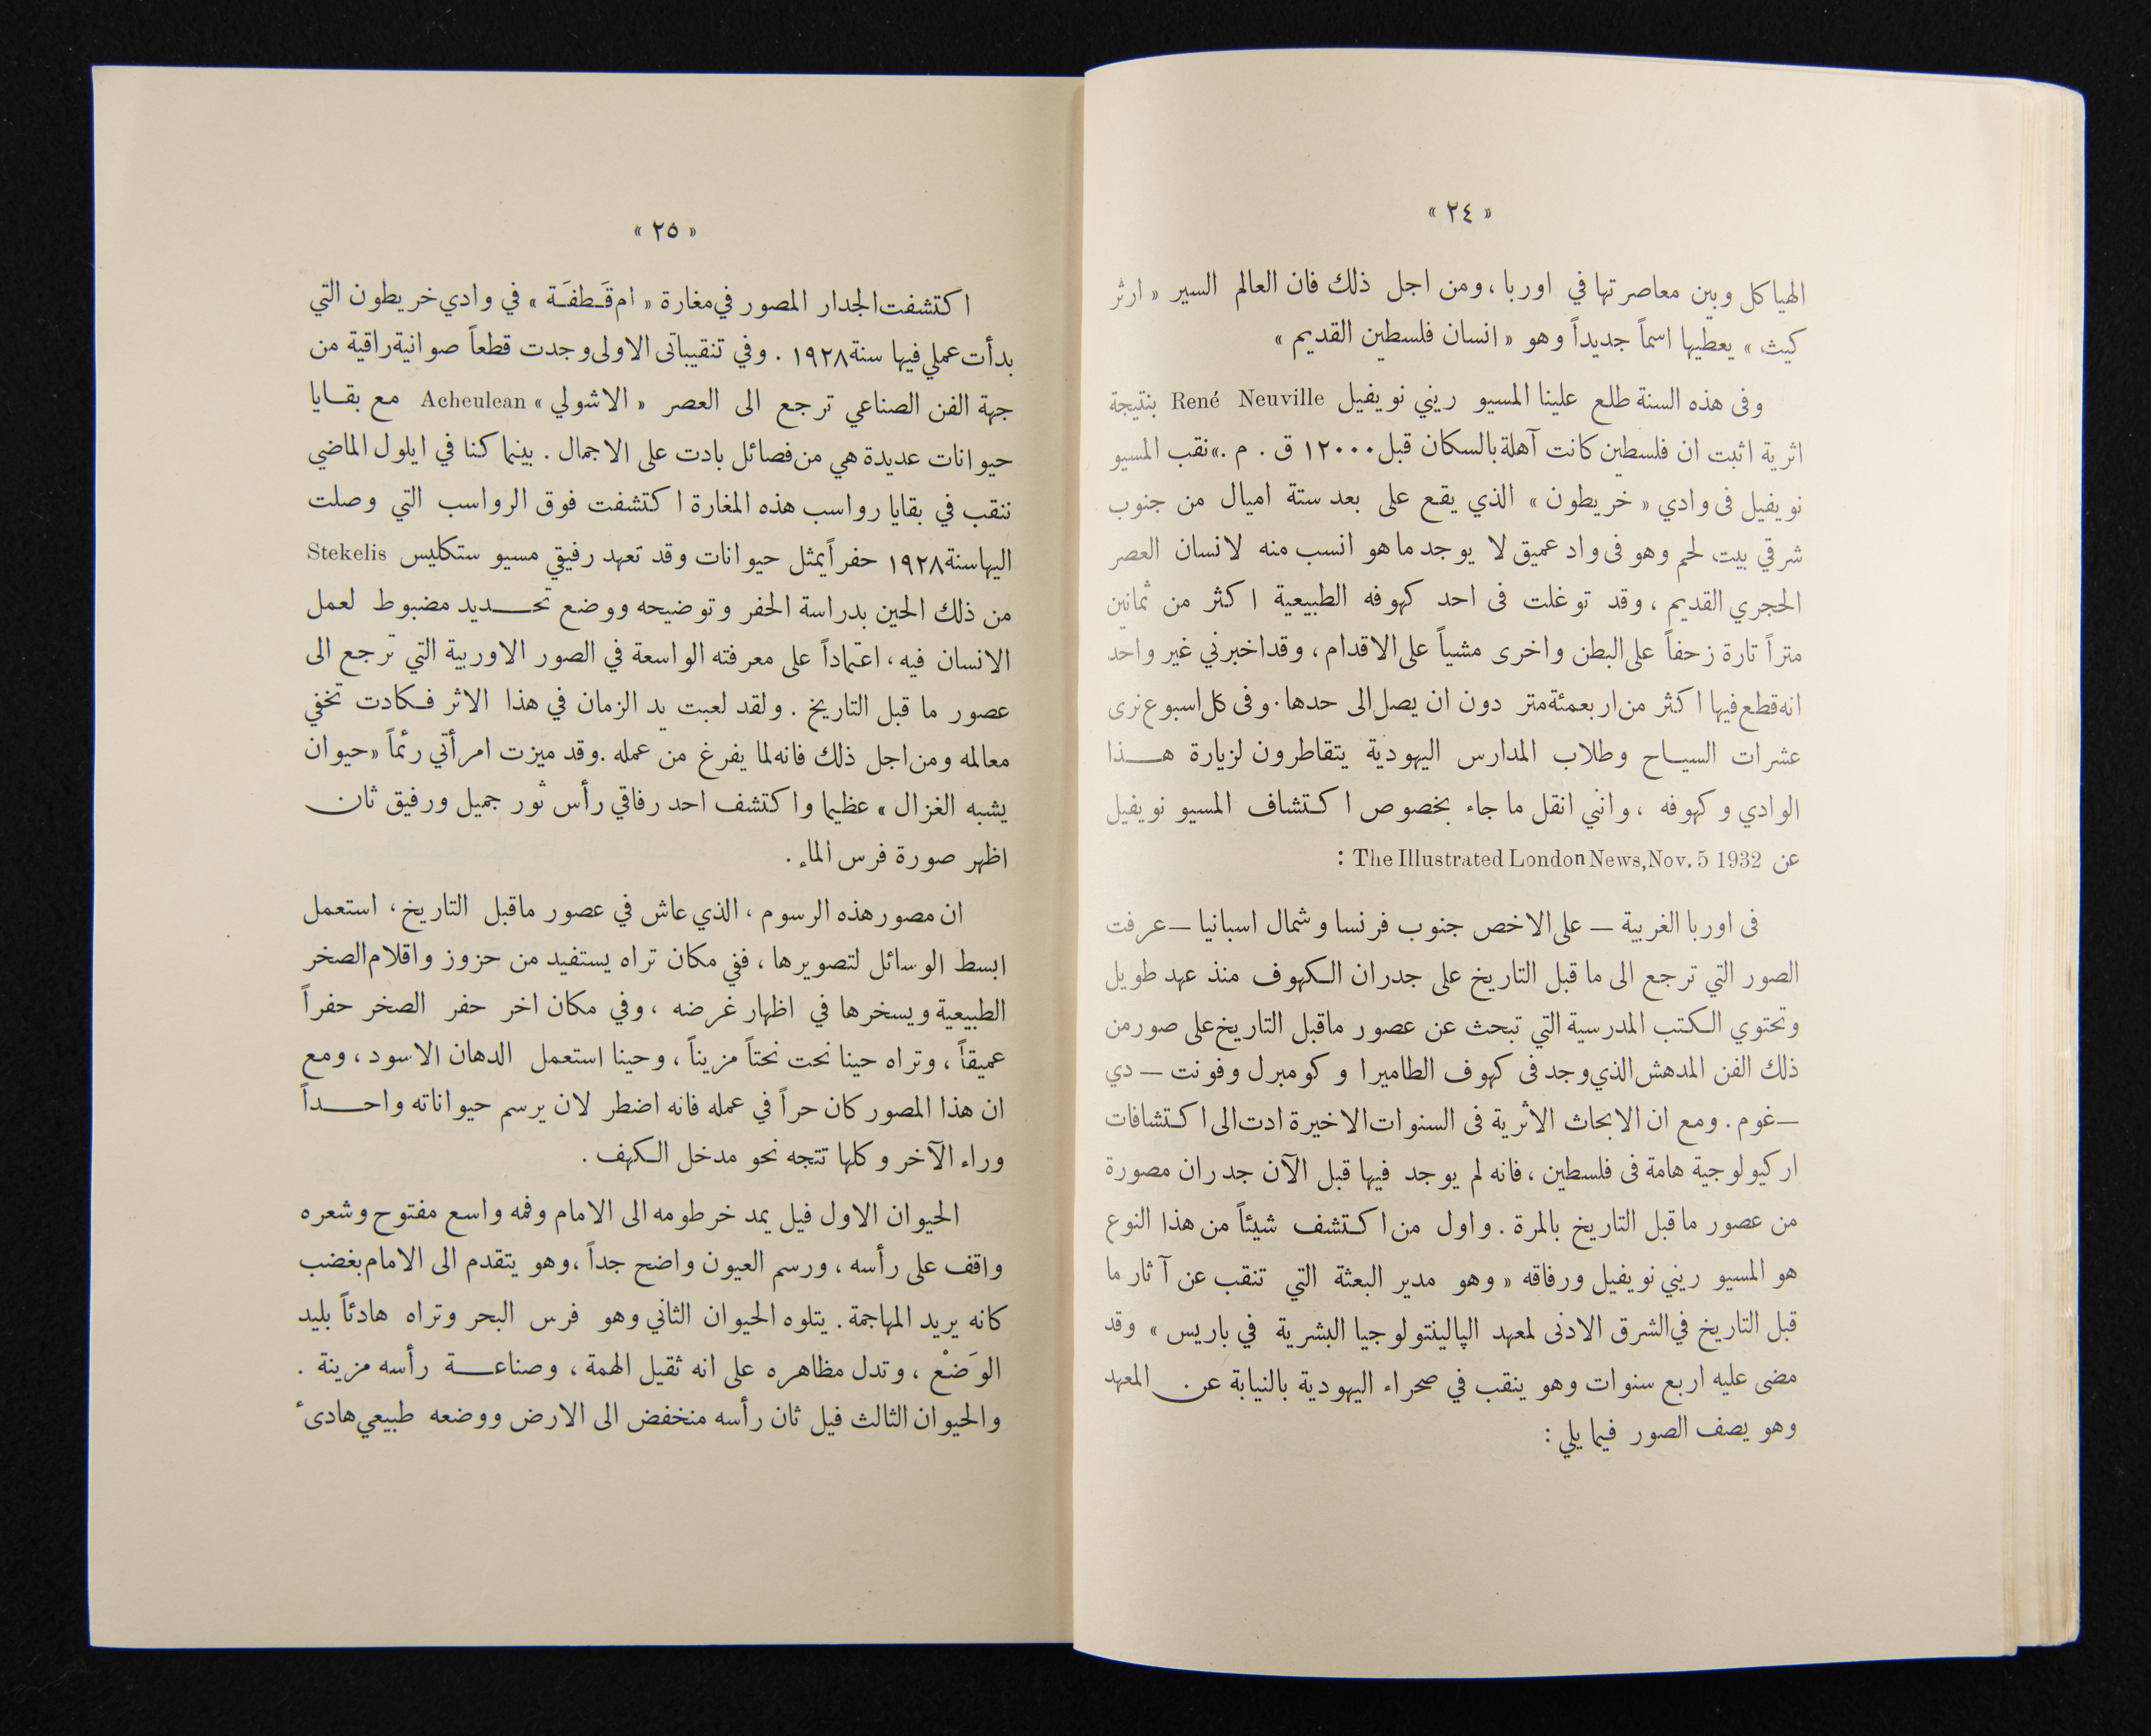 « ٢٤ »
الهياكل وبين معاصرتها في اوربا ، ومن اجل ذلك فان العالم السير « ارثر
كيث » يعطيها اسماً جديداً وهو « انسان فلسطين القديم »
وفى هذه السنة طلع علينا المسيو ريني نويفيل René Neuville بنتيجة
اثرية اثبت ان فلسطين كانت آهلة بالسكان قبل ١٢٠٠٠ ق . م .» نقب المسيو
نويفيل فى وادي « خريطون » الذي يقع على بعد ستة اميال من جنوب
شرقي بيت لحم وهو فى واد عميق لا يوجد ما هو انسب منه لانسان العصر
الحجري القديم ، وقد توغلت فى احد كهوفه الطبيعية اكثر من ثمانين
متراً تارة زحفاً على البطن واخرى مشياً على الاقدام ، وقد اخبرني غير واحد
انه قطع فيها اكثر من اربعمئة متر دون ان يصل الى حدها . وفى كل اسبوع نرى
عشرات السيـاح وطلاب المدارس اليهودية يتقاطرون لزيارة هـــذا
الوادي وكهوفه ، وانني انقل ما جاء بخصوص اكتشاف المسيو نويفيل
عن The Illustrated London News, Nov. 5 1932 :
فى اوربا الغربية — على الاخص جنوب فرنسا وشمال اسبانيا — عرفت
الصور التي ترجع الى ما قبل التاريخ على جدران الكهوف منذ عهد طويل
وتحتوي الكتب المدرسية التي تبحث عن عصور ما قبل التاريخ على صور من
ذلك الفن المدهش الذي وجد فى كهوف الطاميرا وكومبرل وفونت — دي
— غوم . ومع ان الابحاث الاثرية فى السنوات الاخيرة ادت الى اكتشافات
اركيولوجية هامة فى فلسطين ، فانه لم يوجد فيها قبل الآن جدران مصورة
من عصور ما قبل التاريخ بالمرة . واول من اكتشف شيئاً من هذا النوع
هو المسيو ريني نويفيل ورفاقه « وهو مدير البعثة التي تنقب عن آثار ما
قبل التاريخ في الشرق الادنى لمعهد الپالينتولوجيا البشرية في باريس » وقد
مضى عليه اربع سنوات وهو ينقب في صحراء اليهودية بالنيابة عن المعهد
وهو يصف الصور فيما يلي :
« ٢٥ »
اكتشفت الجدار المصور في مغارة « ام قَـطفَـة » في وادي خريطون التي
بدأت عملي فيها سنة ١٩٢٨ . وفي تنقيباتى الاولى وجدت قطعاً صوانية راقية من
جهة الفن الصناعي ترجع الى العصر « الاشولي » Acheulean مع بقـايا
حيوانات عديدة هي من فصائل بادت على الاجمال . بينما كنا في ايلول الماضي
ننقب في بقايا رواسب هذه المغارة اكتشفت فوق الرواسب التي وصلت
اليها سنة ١٩٢٨ حفراً يمثل حيوانات وقد تعهد رفيقي مسيو ستكليس Stekelis
من ذلك الحين بدراسة الحفر وتوضيحه ووضع تحـــديد مضبوط لعمل
الانسان فيه ، اعتماداً على معرفته الواسعة في الصور الاوربية التي ترجع الى
عصور ما قبل التاريخ . ولقد لعبت يد الزمان في هذا الاثر فكادت تخفي
معالمه ومن اجل ذلك فانه لما يفرغ من عمله . وقد ميزت امرأتي رئماً « حيوان
يشبه الغزال » عظيما واكتشف احد رفاقي رأس ثور جميل ورفيق ثان
اظهر صورة فرس الماء .
ان مصور هذه الرسوم ، الذي عاش في عصور ماقبل التاريخ ، استعمل
ابسط الوسائل لتصويرها ، ففي مكان تراه يستفيد من حزوز واقلام الصخر
الطبيعية ويسخرها في اظهار غرضه ، وفي مكان اخر حفر الصخر حفراً
عميقاً ، وتراه حينا نحت نحتاً مزيناً ، وحينا استعمل الدهان الاسود ، ومع
ان هذا المصور كان حراً في عمله فانه اضطر لان يرسم حيواناته واحـــداً
وراء الآخر وكلها تتجه نحو مدخل الكهف .
الحيوان الاول فيل يمد خرطومه الى الامام وفمه واسع مفتوح وشعره
واقف على رأسه ، ورسم العيون واضح جداً ، وهو يتقدم الى الامام بغضب
كانه يريد المهاجمة . يتلوه الحيوان الثاني وهو فرس البحر وتراه هادئاً بليد
الوَضْع ، وتدل مظاهره على انه ثقيل الهمة ، وصناعـــة رأسه مزينة .
والحيوان الثالث فيل ثان رأسه منخفض الى الارض ووضعه طبيعي هادىء